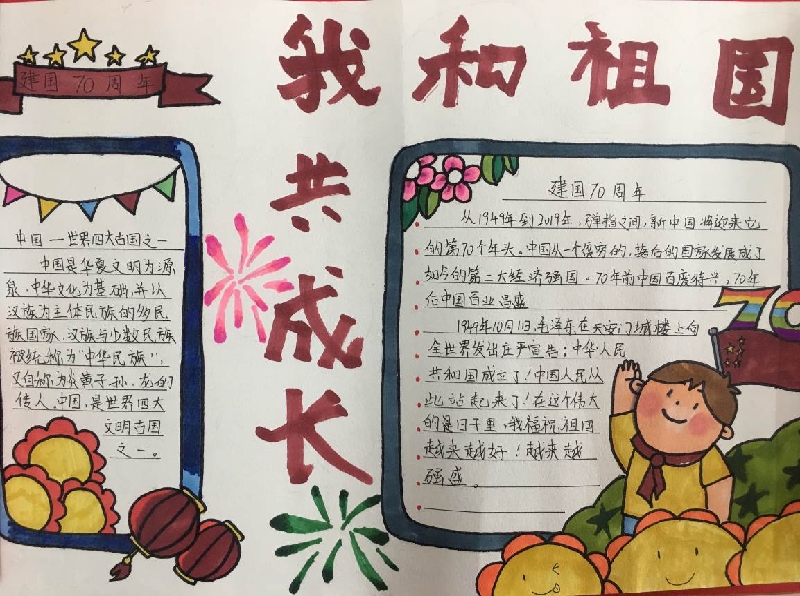 我和祖国
共成长
建国70周年
中国一世界四大古国之一
中国是华夏文明为源
泉,中华文化为基础,并以
汉族为主体民族的多民
族国家,汉族与少数民族
被统称为“中华民族”,
又自称为炎黄子孙,龙的
传人。中国,是世界四大
文明古国
之一。
建国70周年
从1949年到2019年,弹指之间,新中国将迎来它
的第70个年头。中国从一个贫穷的,落后的国家发展成了
如今的第二大经济强国。70年前中国百废待兴,70年
后中国百业昌盛
1949年10月1日,毛泽东在天安门城楼上向
全世界发出庄严宣告:中华人民
共和国成立了!中国人民从
此站起来了!在这个伟大
的
日子里,我福祝祖国
越来越好!越来越
强盛。
70